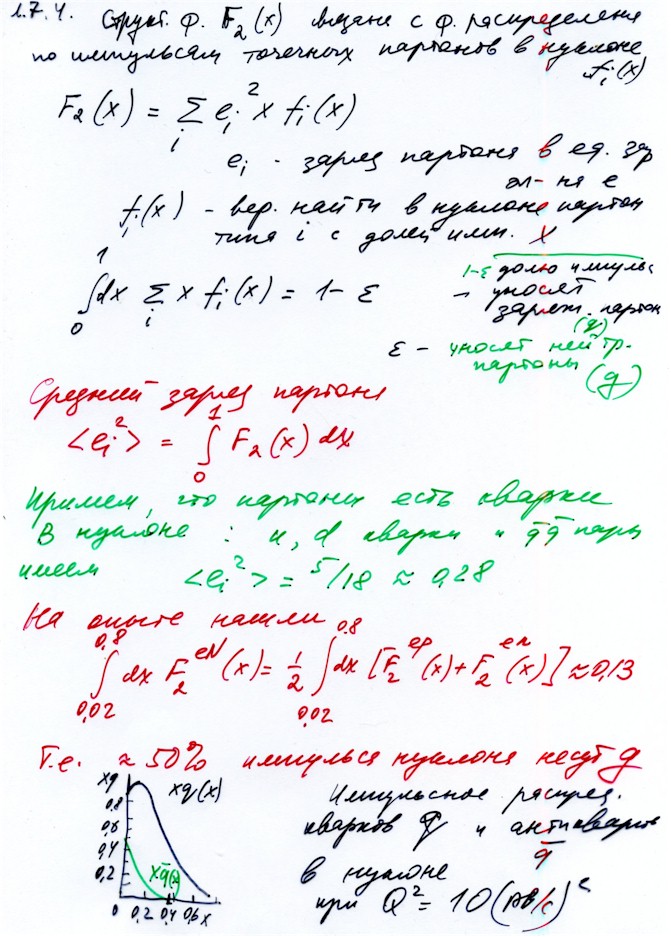 1.7.4. Структ. ф. F₂(x) связана с ф. распределения
по импульсам точечных партонов в нуклоне
fᵢ(x)
F₂(x) = Σᵢ eᵢ² x fᵢ(x)
eᵢ - заряд партона в ед. зар
эл-на e
fᵢ(x) - вер. найти в нуклоне партон
типа i с долей имп. x
∫₀¹dx Σᵢ x fᵢ(x) = 1 - ε
1-ε долю импульс
- уносят
заряж. партон
(q)
ε - уносят нейтр.
партоны (g)
Средний заряд партона
<eᵢ²> = ∫₀¹ F₂(x) dx
Примем, что партоны есть кварки
В нуклоне : u, d кварки и q̄q̄ пары
имеем <eᵢ²> = 5/18 ≈ 0,28
На опыте нашли
∫₀,₀₂^0,8 dx F₂^eN(x) = 1/2 ∫₀,₀₂^0,8 dx [F₂^ep(x) + F₂^en(x)] ≈ 0,13
Т.е. ≈ 50% импульса нуклона несут g
xq
xq(x)
0,8
0,6
0,4
0,2
xq̄(x)
0 0,2 0,4 0,6 x
Импульсное распред.
кварков q и антикварков
q̄
в нуклоне
при Q² = 10 (ГэВ/c)²